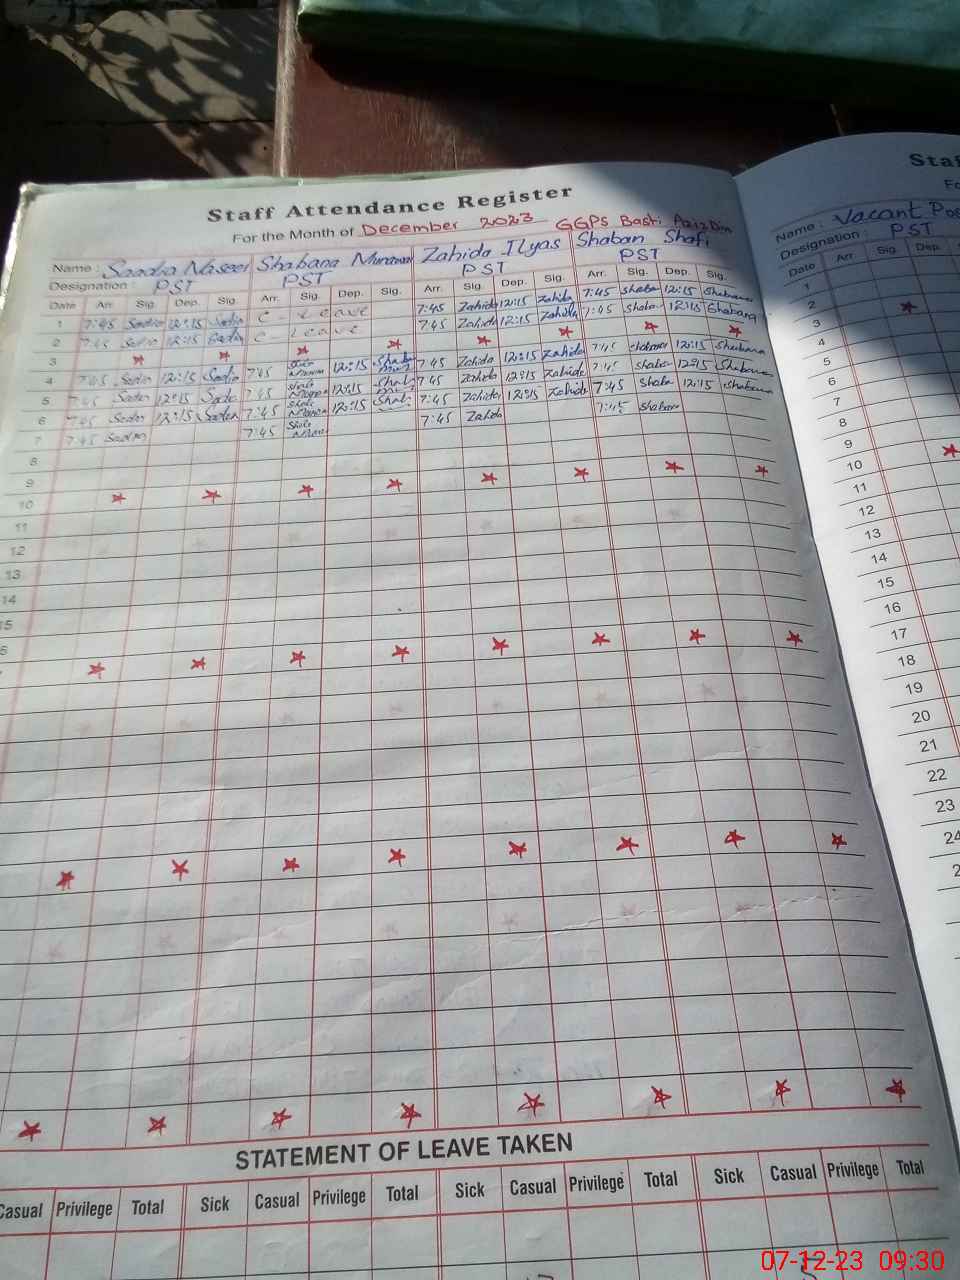 Staff Attendance Register
For the Month of December 2023 GGPS Basti Aziz Din
Name : Saadia Naseer Shabana Munawar Zahida Ilyas Shaban Shafi
Designation : PST PST PST PST
Date Arr. Sig. Dep. Sig. Arr. Sig. Dep. Sig. Arr. Sig. Dep. Sig. Arr. Sig. Dep. Sig.
1 7:45 Sadia 12:15 Sadia C - Leave 7:45 Zahida 12:15 Zahida 7:45 Shaba 12:15 Shabana
2 7:45 Sadia 12:15 Sadia C - Leave 7:45 Zahida 12:15 Zahida 7:45 Shaba 12:15 Shabana
3
4 7:45 Sadia 12:15 Sadia 7:45 12:15 7:45 Zahida 12:15 Zahida 7:45 Shabana 12:15 Shabana
5 7:45 Sadia 12:15 Sadia 7:45 12:15 7:45 Zahida 12:15 Zahida 7:45 Shaba 12:15 Shabana
6 7:45 Sadia 12:15 Sadia 7:45 12:15 7:45 Zahida 12:15 Zahida 7:45 Shaba 12:15 Shabana
7 7:45 Sadia 7:45 7:45 Zahida 7:45 Shaban
8
9
10
11
12
13
14
15
STATEMENT OF LEAVE TAKEN
Casual Privilege Total Sick Casual Privilege Total Sick Casual Privilege Total Sick Casual Privilege Total
Name : Vacant Pos
Designation : PST
Date Arr. Sig. Dep.
1
2
3
4
5
6
7
8
9
10
11
12
13
14
15
16
17
18
19
20
21
22
23
24
07-12-23 09:30